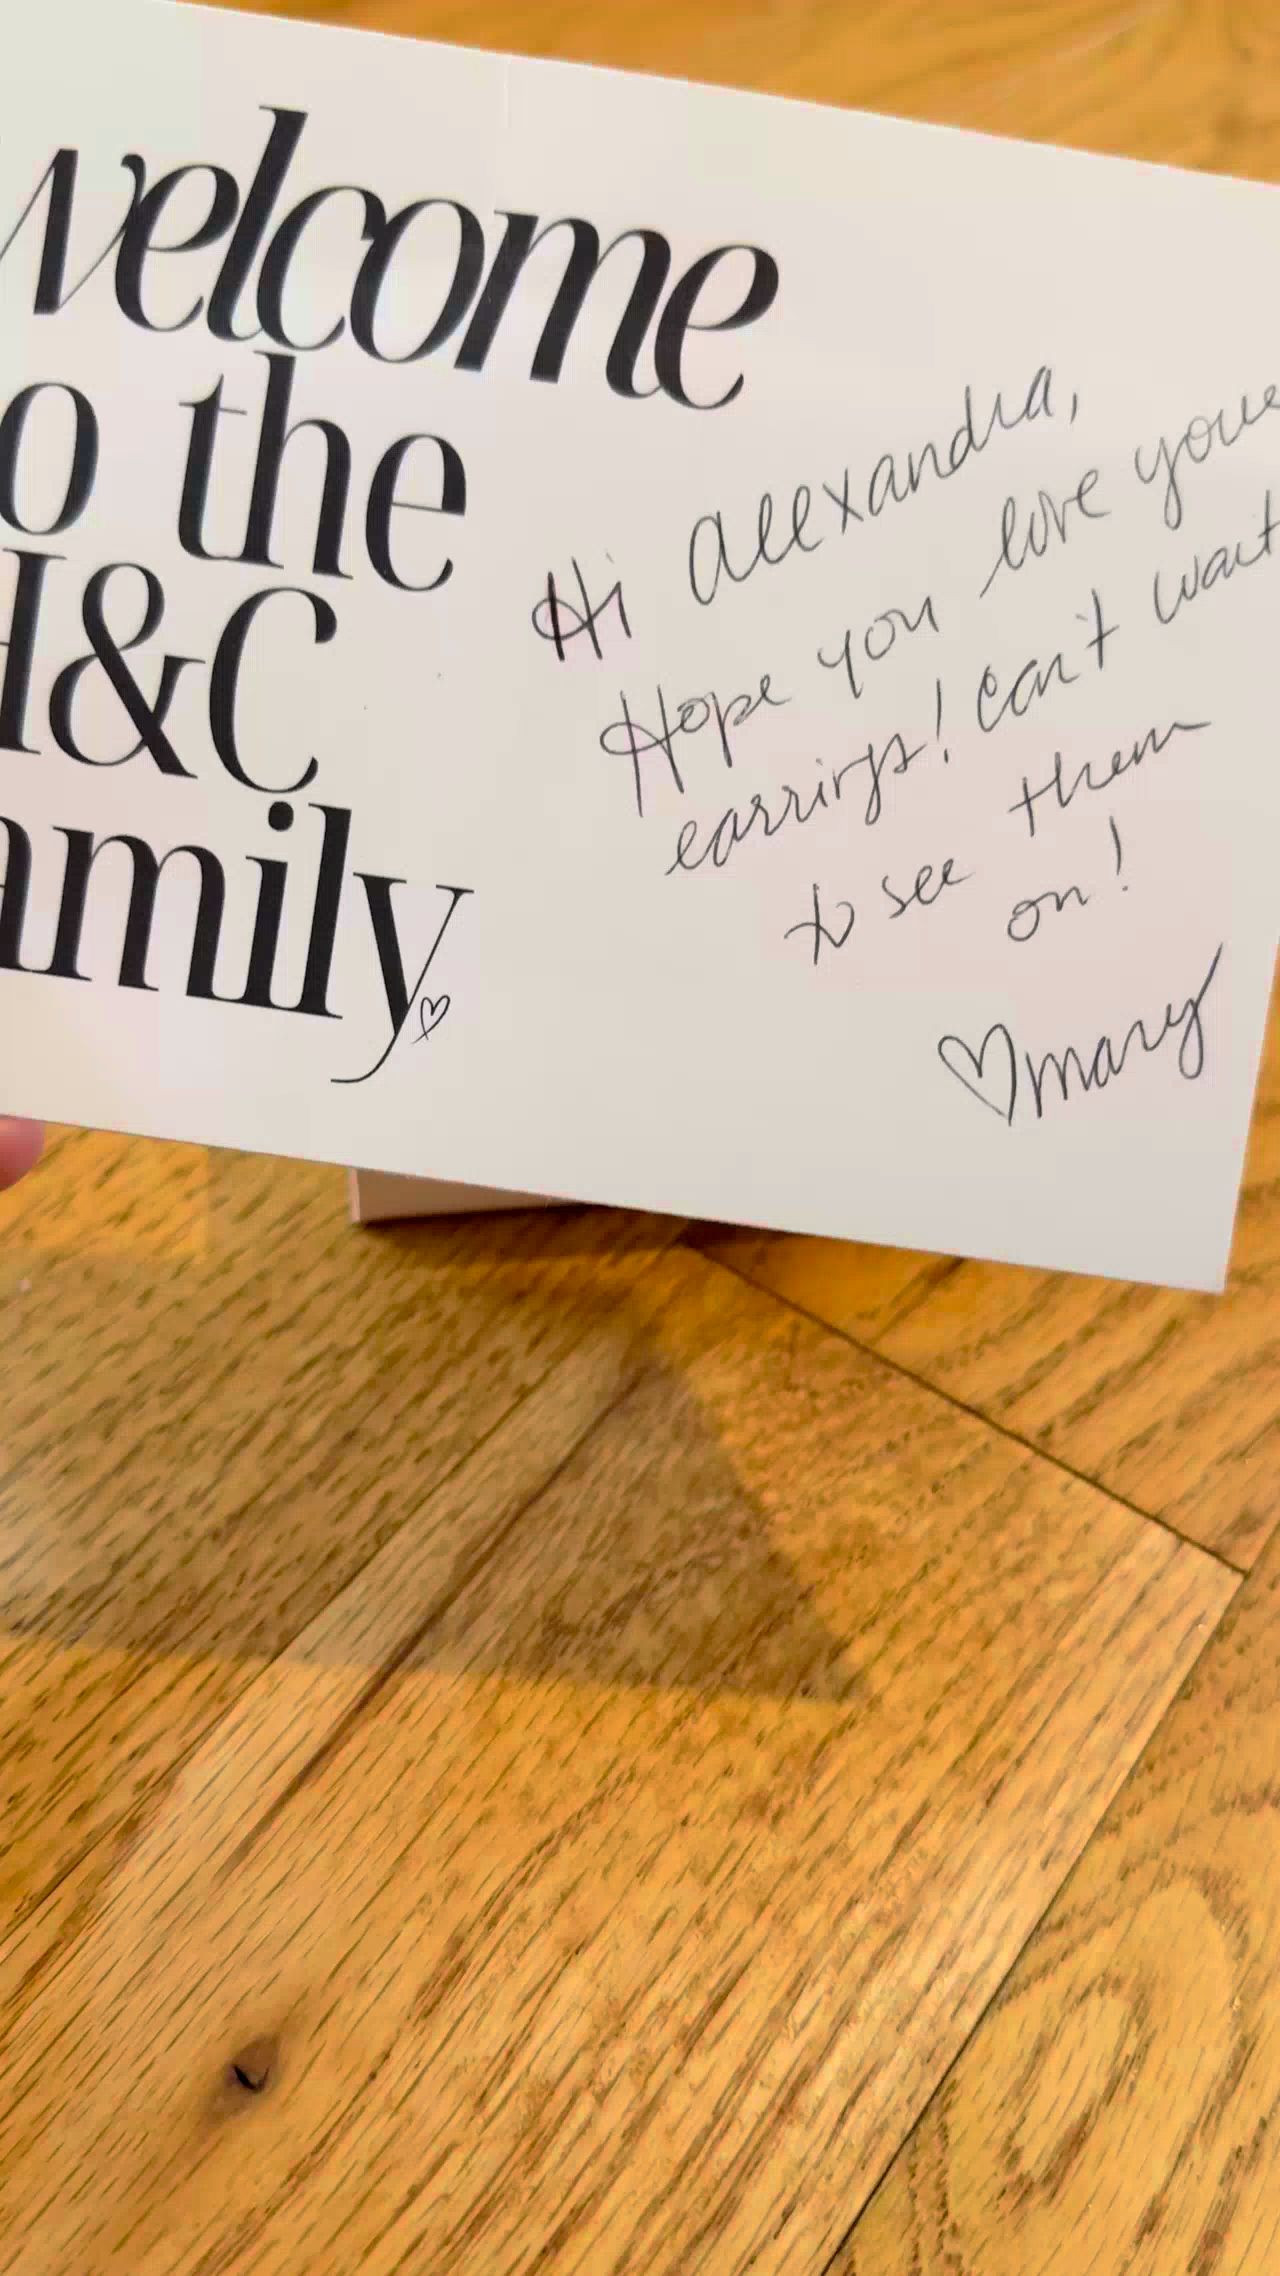 welcome
o the
&C
amily
Hi Alexandra,
Hope you love your
earrings! Can't wait
to see them
on!
♡mary